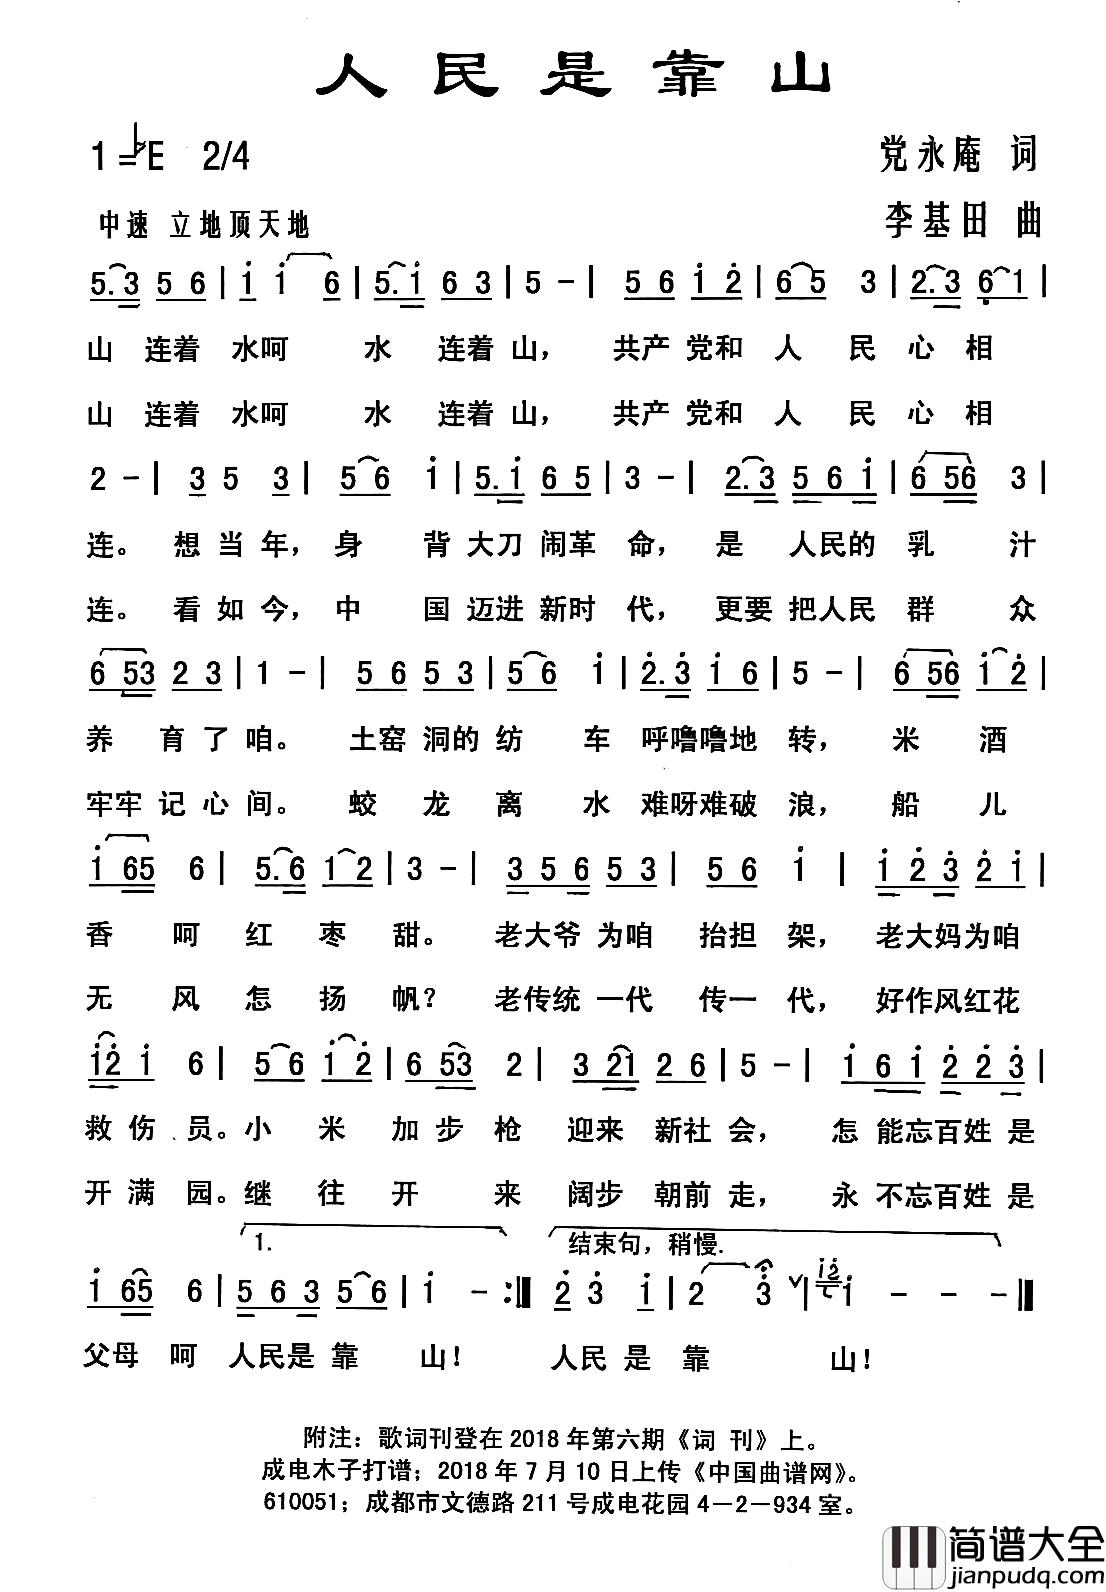 人民是靠山
1=♭E 2/4
党永庵 词
中速 立地顶天地
李基田 曲
5.3 5 6 | i i 6 | 5.i 6 3 | 5 - | 5 6 i 2 | 6 5 3 | 2.3 6 1 |
山 连着 水呵 水 连着山， 共产党和 人 民 心 相
山 连着 水呵 水 连着山， 共产党和 人 民 心 相
2 - | 3 5 3 | 5 6 i | 5.i 6 5 | 3 - | 2.3 5 6 i | 6 56 3 |
连。 想 当 年， 身 背 大刀 闹革 命， 是 人民的 乳 汁
连。 看 如 今， 中 国 迈进 新时 代， 更要 把人民 群 众
6 53 2 3 | 1 - | 5 6 5 3 | 5 6 i | 2.3 i 6 | 5 - | 6 56 i 2 |
养 育 了 咱。 土窑 洞的 纺 车 呼噜噜地 转， 米 酒
牢牢 记 心 间。 蛟 龙 离 水 难呀难破 浪， 船 儿
i 65 6 | 5.6 1 2 | 3 - | 3 5 6 5 3 | 5 6 i | i 2 3 2 i |
香 呵 红 枣 甜。 老大爷 为咱 抬担 架， 老大妈为咱
无 风 怎 扬 帆？ 老传统 一代 传一 代， 好作风红花
i2 i 6 | 5 6 i 2 | 6 53 2 | 3 21 2 6 | 5 - | i 6 i 2 2 3 |
救 伤 员。 小 米 加 步 枪 迎来 新社 会， 怎 能忘百姓 是
开 满 园。 继 往 开 来 阔步 朝前 走， 永 不忘百姓 是
1. 结束句，稍慢.
i 65 6 | 5 6 3 5 6 | i - :‖ 2 3 i | 2 3 ∨ | i2 i - - - ‖
父母 呵 人民是 靠 山！ 人民 是 靠 山！
附注：歌词刊登在 2018 年第六期《词 刊》上。
成电木子打谱；2018 年 7 月 10 日上传《中国曲谱网》。
610051；成都市文德路 211 号成电花园 4－2－934 室。
简谱大全
jianpudq.com